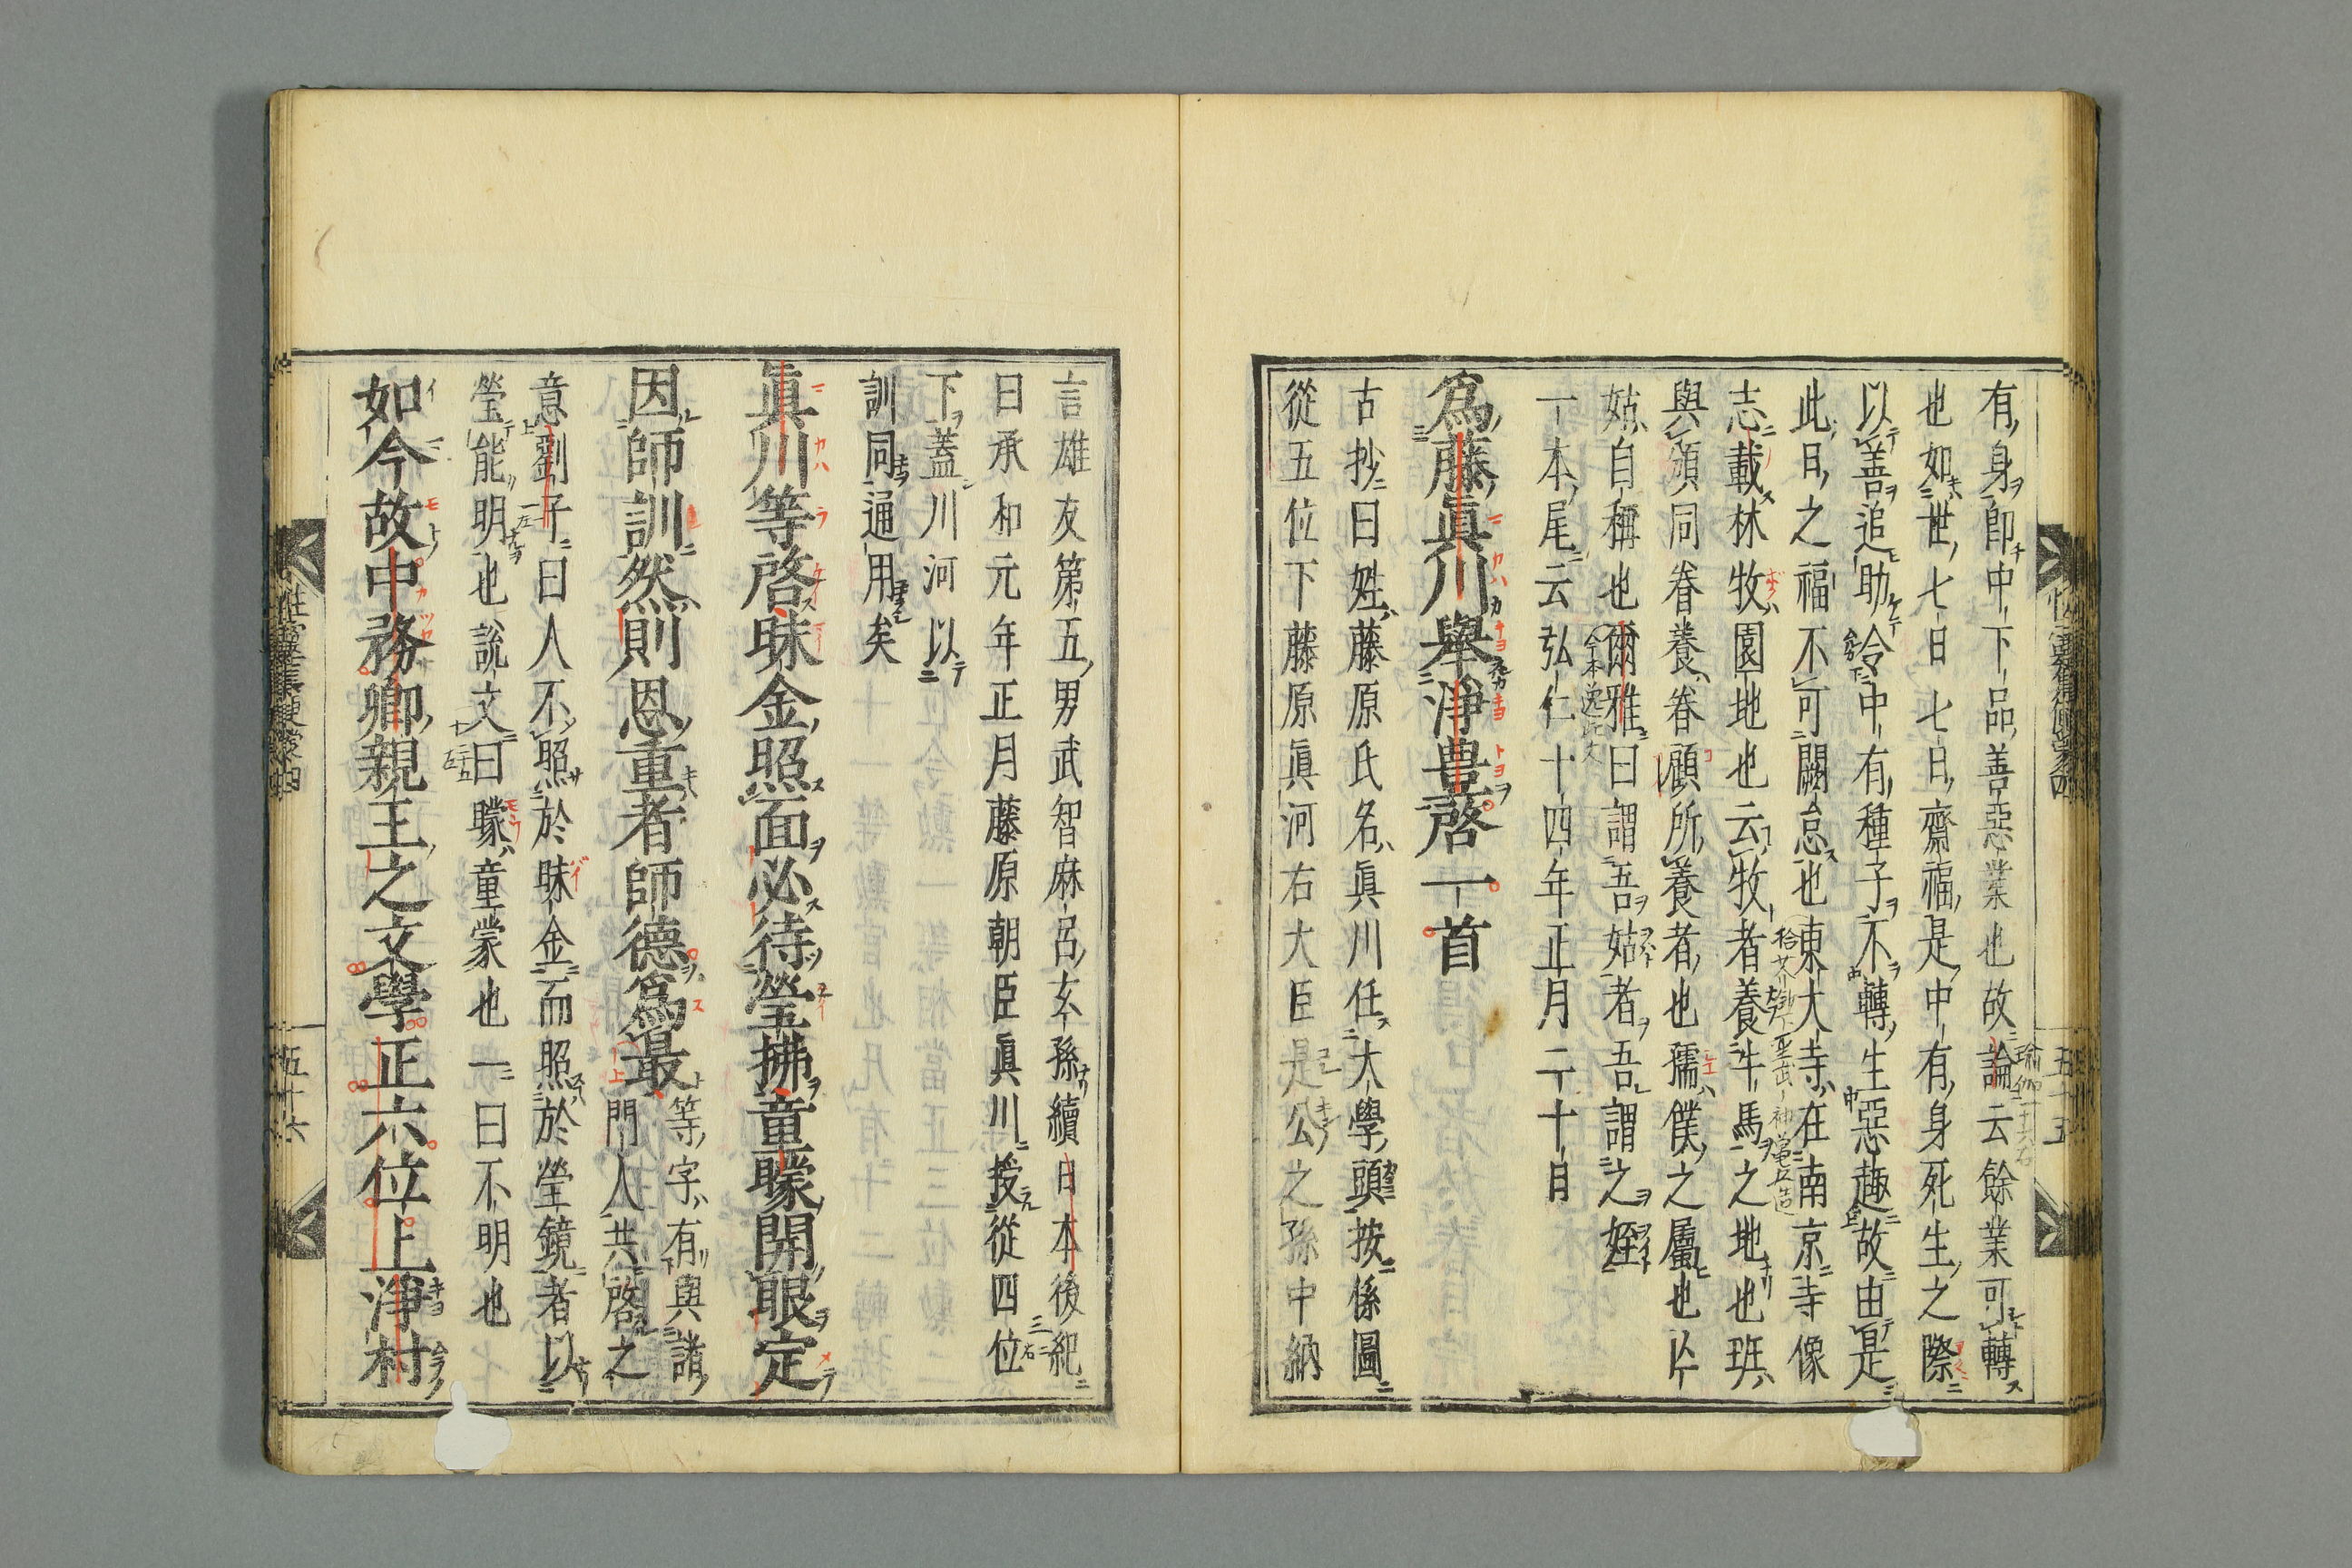 有身即中下品善惡業也故論云餘業可轉
也如世七日七日齋福是中有身死生之際
以善追助令中有種子不轉生惡趣故由是
此日之福不可闕怠也東大寺在南京寺像
志載林牧園地也云牧者養牛馬之地也珙
與頒同眷養眷顧所養者也孺僕之屬也
姑自稱也爾雅曰謂吾姑者吾謂之姪
一本尾云弘仁十四年正月二十日
爲藤眞川舉淨豊啓一首
古抄曰姓藤原氏名眞川任大學頭按係圖
從五位下藤原眞河右大臣是公之孫中納
言雄友第五男武智麻呂玄孫續日本後紀
曰承和元年正月藤原朝臣眞川授從四位
下蓋川河以
訓同通用矣
眞川等啓昧金照面必待瑩拂童矇開眼定
因師訓然則恩重者師德爲最
等字有與諸
門人共啓之
意劉子曰人不照於昧金而照於瑩鏡者以
瑩能明也說文曰矇童蒙也一曰不明也
如今故中務卿親王之文學正六位上淨村
五十五
五十六